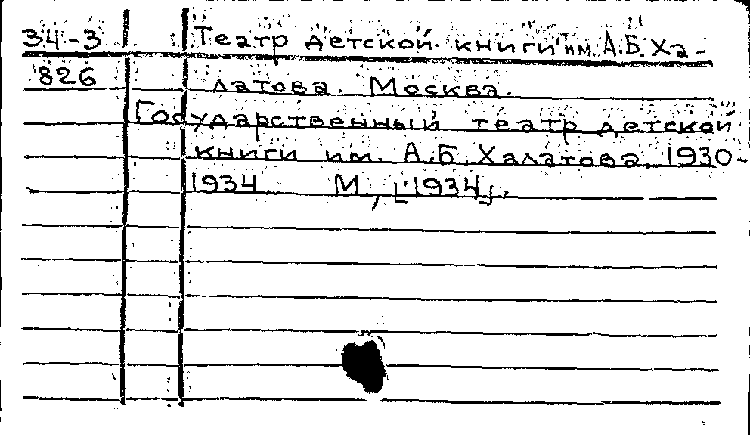 34-3 Театр детской книги им. А.Б. Ха-
826 латова. Москва.
Государственный театр детской
книги им. А.Б. Халатова. 1930-
1934. М., [1934].